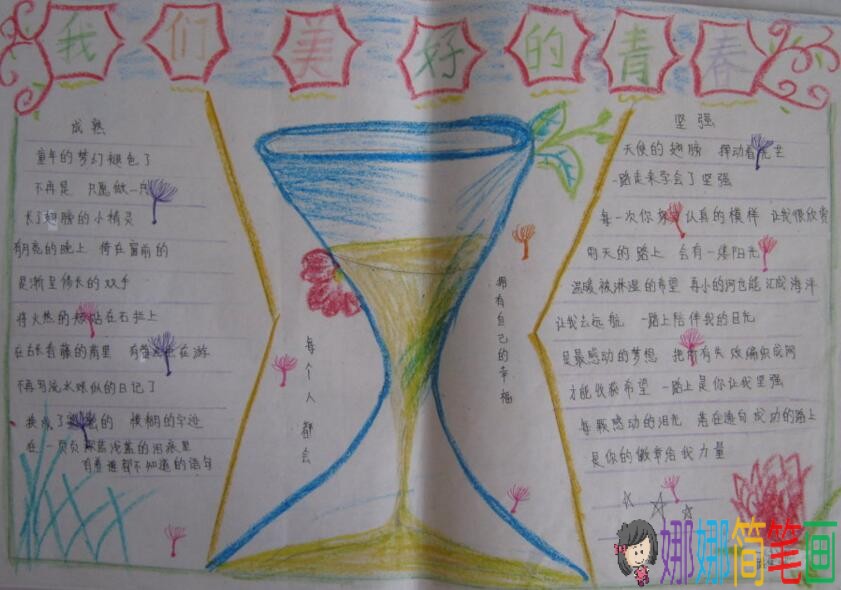 我们美好的青春
成熟
童年的梦幻褪色了
不再是 只愿做一只
长了翅膀的小精灵
有月亮的晚上 倚在窗前的
是渐呈修长的双手
将火热的 贴在石拦上
在古长春藤的 里 有 在游
不再写流水账似的日记了
换成了 的 模糊的字迹
在一页页 蓝浅蓝的泪痕里
有着谁都不知道的语句
每个人都会
拥有自己的幸福
坚强
天使的翅膀 挥动着光芒
一路走来学会了坚强
每一次你 认真的模样 让我很欣赏
明天的路上 会有一缕阳光
温暖被淋湿的希望 再小的河也能汇成海洋
让我去远航 一路上陪伴我的目光
是最感动的梦想 把所有失败编织成网
才能收获希望 一路上是你让我坚强
每颗感动的泪光 落在通向成功的路上
是你的徽章给我力量
娜娜简笔画